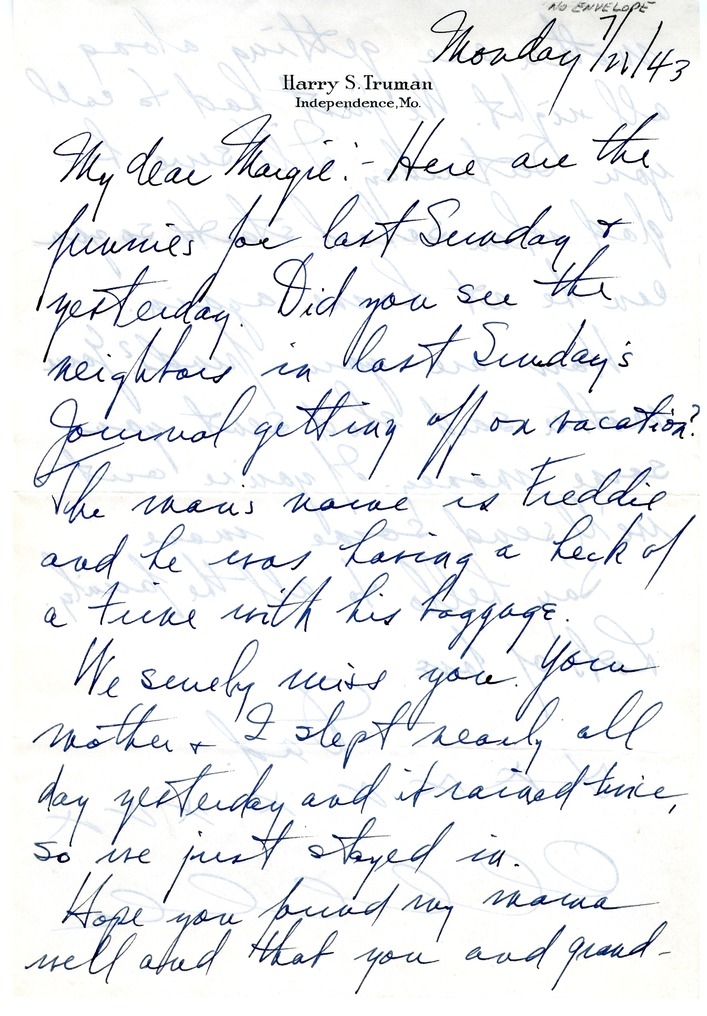 NO ENVELOPE
Monday 7/12/43
Harry S. Truman
Independence, Mo.
My dear Margie:- Here are the
funnies for last Sunday &
yesterday. Did you see the
neighbors in last Sunday's
Journal getting off on vacation?
The man's name is Freddie
and he was having a heck of
a time with his baggage.
We surely miss you. Your
mother & I slept nearly all
day yesterday and it rained twice,
so we just stayed in.
Hope you found my mama
well and that you and grand-